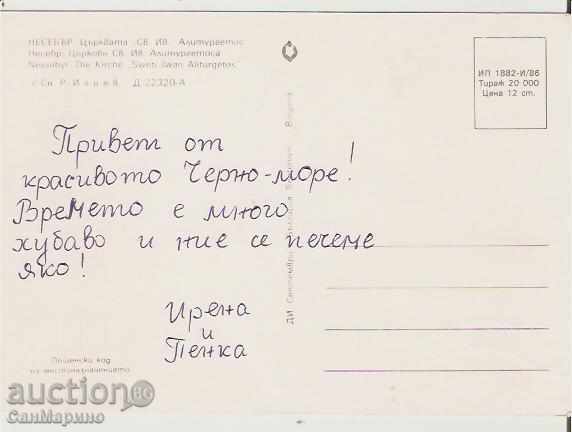 НЕСЕБЪР. Църквата „Св. Ив. Алитургетос“
Несебр. Церковь „Св. Ив. Алитургетоса“
Nessebar. Die Kirche „Sweti Iwan Aliturgetos“
Д-22320-А
ИП 1882-И/86
Тираж 20 000
Цена 12 ст.
Привет от
красивото Черно-море!
Времето е много
хубаво и ние се печеме
яко!
Ирена
и
Пенка
Пощенски код
на местоназначението
auction BG
СанМарино